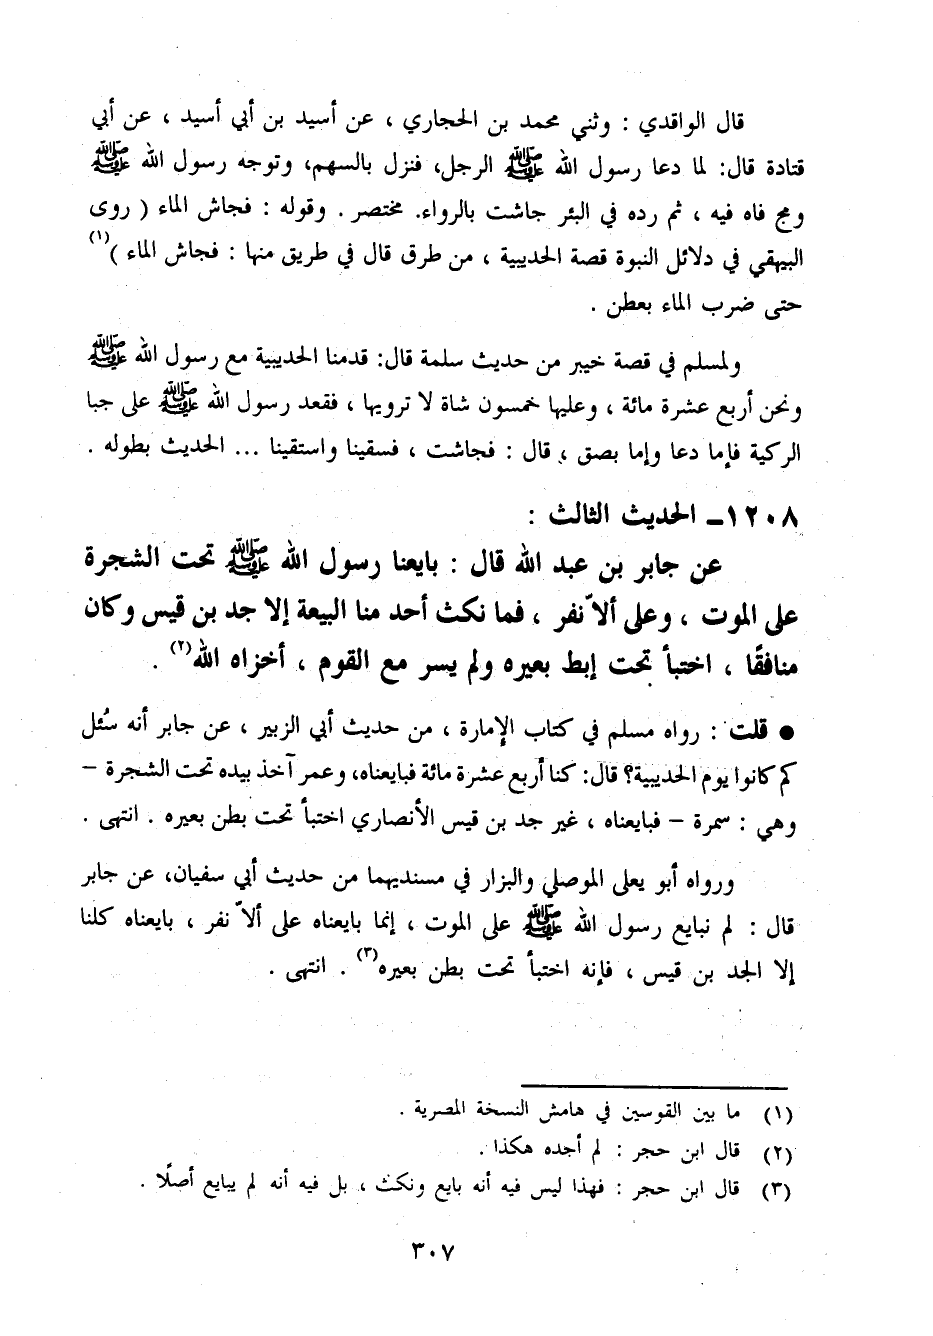 قال الواقدي : وثني محمد بن الحجاري ، عن أسيد بن أبي أسيد ، عن أبي
قتادة قال: لما دعا رسول الله ﷺ الرجل، فنزل بالسهم، وتوجه رسول الله ﷺ
ومج فاه فيه ، ثم رده في البئر جاشت بالرواء. مختصر . وقوله : فجاش الماء ( روى
البيهقي في دلائل النبوة قصة الحديبية ، من طرق قال في طريق منها : فجاش الماء )(١)
حتى ضرب الماء بعطن .
ولمسلم في قصة خيبر من حديث سلمة قال: قدمنا الحديبية مع رسول الله ﷺ
ونحن أربع عشرة مائة ، وعليها خمسون شاة لا ترويها ، فقعد رسول الله ﷺ على جبا
الركية فإما دعا وإما بصق ، قال : فجاشت ، فسقينا واستقينا ... الحديث بطوله .
١٢٠٨ـ الحديث الثالث :
عن جابر بن عبد الله قال : بايعنا رسول الله ﷺ تحت الشجرة
على الموت ، وعلى ألاّ نفر ، فما نكث أحد منا البيعة إلا جد بن قيس وكان
منافقًا ، اختبأ تحت إبط بعيره ولم يسر مع القوم ، أخزاه الله(٢) .
● قلت : رواه مسلم في كتاب الإمارة ، من حديث أبي الزبير ، عن جابر أنه سُئل
كم كانوا يوم الحديبية؟ قال: كنا أربع عشرة مائة فبايعناه، وعمر آخذ بيده تحت الشجرة –
وهي : سمرة – فبايعناه ، غير جد بن قيس الأنصاري اختبأ تحت بطن بعيره . انتهى .
ورواه أبو يعلى الموصلي والبزار في مسنديهما من حديث أبي سفيان، عن جابر
قال : لم نبايع رسول الله ﷺ على الموت ، إنما بايعناه على ألاّ نفر ، بايعناه كلنا
إلا الجد بن قيس ، فإنه اختبأ تحت بطن بعيره(٣) . انتهى .
(١) ما بين القوسين في هامش النسخة المصرية .
(٢) قال ابن حجر : لم أجده هكذا .
(٣) قال ابن حجر : فهذا ليس فيه أنه بايع ونكث ، بل فيه أنه لم يبايع أصلًا .
٣٠٧